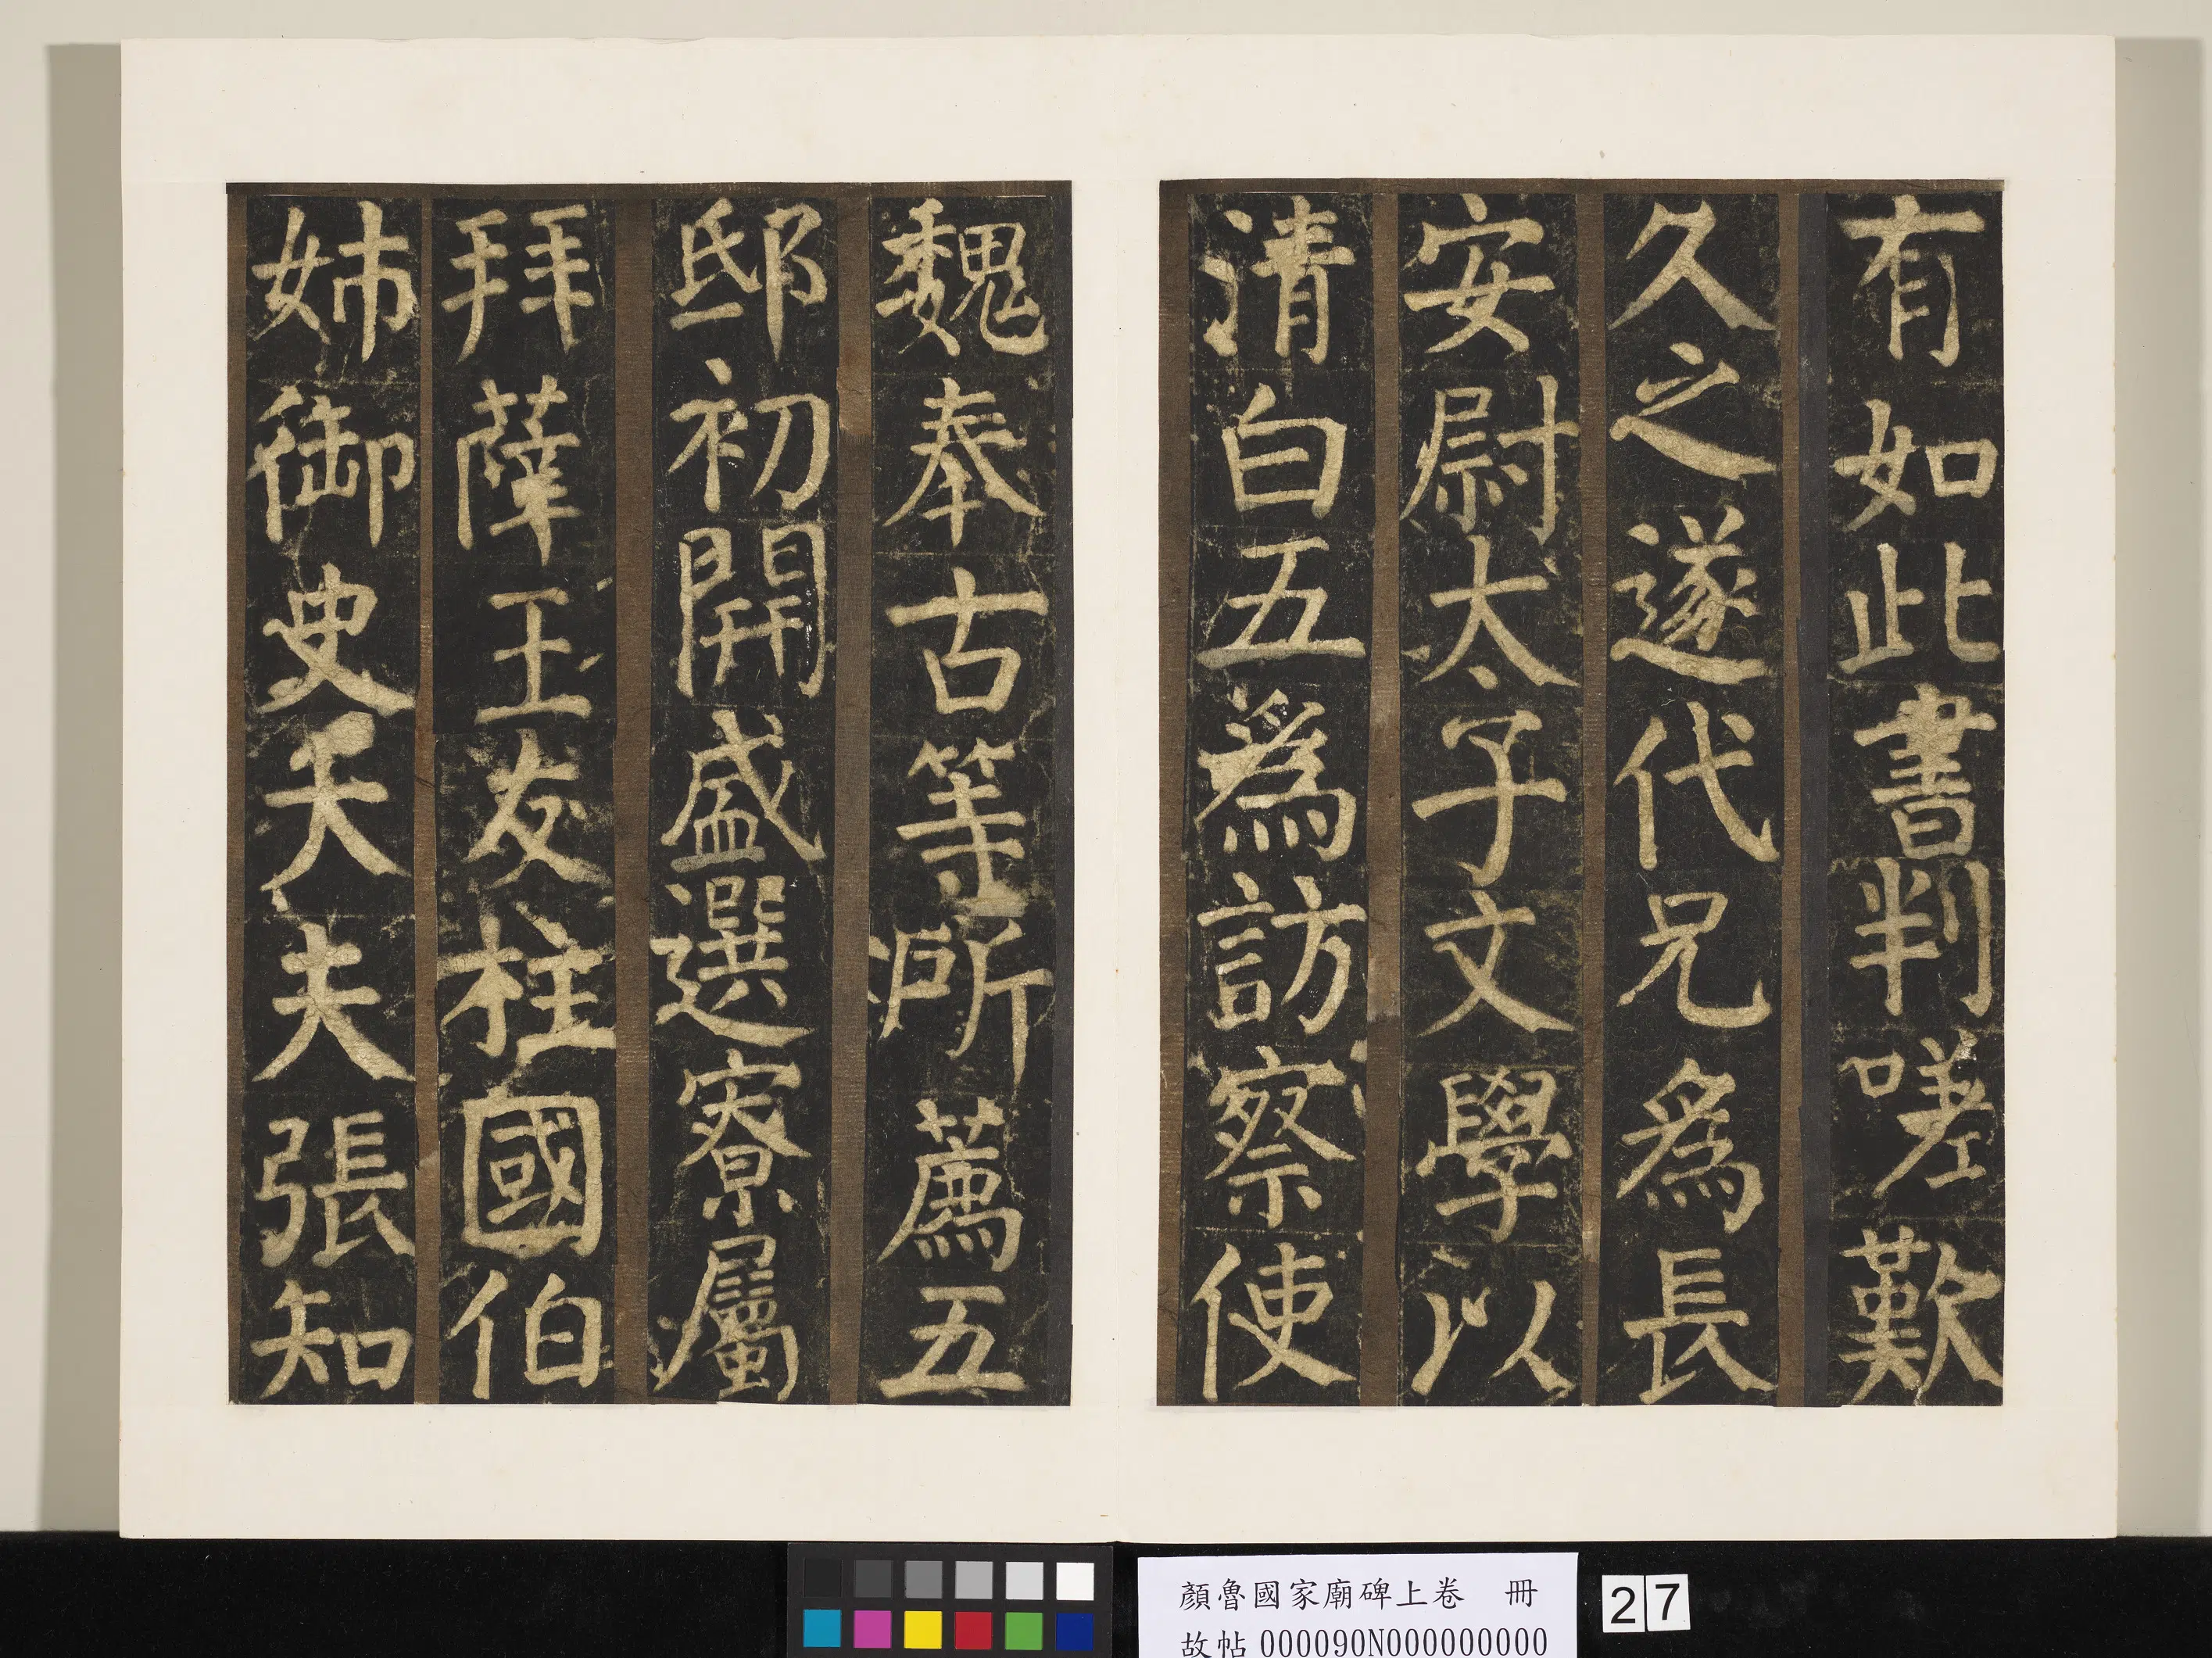 有如此書判嗟歎
久之遂代兄為長
安尉太子文學以
清白五為訪察使
魏奉古等所薦五
邸初開盛選寮屬
拜薛王友柱國伯
姊御史大夫張知
顏魯國家廟碑上卷 冊
故帖000090N000000000
27